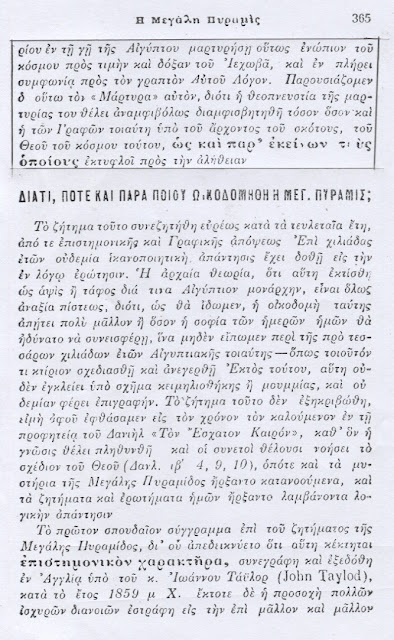 Η Μεγάλη Πυραμὶς 365
ρίου ἐν τῇ γῇ τῆς Αἰγύπτου μαρτυρήσῃ οὕτως ἐνώπιον τοῦ
κόσμου πρὸς τιμὴν καὶ δόξαν τοῦ Ἰεχωβᾶ, καὶ ἐν πλήρει
συμφωνίᾳ πρὸς τὸν γραπτὸν Αὐτοῦ Λόγον. Παρουσιάζομεν
δ οὕτω τὸν «Μάρτυρα» αὐτόν, διότι ἡ θεοπνευστία τῆς μαρ-
τυρίας του θέλει ἀναμφιβόλως διαμφισβητηθῆ τόσον ὅσον καὶ
ἡ τῶν Γραφῶν τοιαύτη ὑπὸ τοῦ ἄρχοντος τοῦ σκότους, τοῦ
Θεοῦ τοῦ κόσμου τούτου, ὡς καὶ παρ' ἐκείνων τοὺς
ὁποίους ἐκτυφλοῖ πρὸς τὴν ἀλήθειαν
ΔΙΑΤΙ, ΠΟΤΕ ΚΑΙ ΠΑΡΑ ΠΟΙΟΥ ΩΚΟΔΟΜΗΘΗ Η ΜΕΓ. ΠΥΡΑΜΙΣ;
Τὸ ζήτημα τοῦτο συνεζητήθη εὐρέως κατὰ τα τελευταῖα ἔτη,
ἀπό τε ἐπιστημονικῆς καὶ Γραφικῆς ἀπόψεως Ἐπὶ χιλιάδας
ἐτῶν οὐδεμία ἱκανοποιητικὴ ἀπάντησις ἔχει δοθῆ εἰς τὴν
ἐν λόγῳ ἐρώτησιν. Ἡ ἀρχαία θεωρία, ὅτι αὕτη ἐκτίσθη
ὡς ἁψὶς ἢ τάφος διά τινα Αἰγύπτιον μονάρχην, εἶναι ὅλως
ἀναξία πίστεως, διότι, ὡς θὰ ἴδωμεν, ἡ οἰκοδομὴ ταύτης
ἀπῄτει πολὺ μᾶλλον ἢ ὅσον ἡ σοφία τῶν ἡμερῶν ἡμῶν θὰ
ἠδύνατο νὰ συνεισφέρῃ, ἵνα μηδὲν εἴπωμεν περὶ τῆς πρὸ τεσ-
σάρων χιλιάδων ἐτῶν Αἰγυπτιακῆς τοιαύτης—ὅπως τοιοῦτόν
τι κτίριον σχεδιασθῇ καὶ ἀνεγερθῇ Ἐκτὸς τούτου, αὕτη οὐ-
δὲν ἐγκλείει ὑπὸ σχῆμα κειμηλιοθήκης ἢ μουμμίας, καὶ οὐ
δεμίαν φέρει ἐπιγραφήν. Τὸ ζήτημα τοῦτο δὲν ἐξηκριβώθη,
εἰμὴ ἀφοῦ ἐφθάσαμεν εἰς τὸν χρόνον τὸν καλούμενον ἐν τῇ
προφητείᾳ τοῦ Δανιὴλ «Τὸν Ἔσχατον Καιρόν», καθ' ὃν ἡ
γνῶσις θέλει πληθυνθῆ καὶ οἱ συνετοὶ θέλουσι νοήσει τὸ
σχέδιον τοῦ Θεοῦ (Δανλ. ιβ' 4, 9, 10), ὁπότε καὶ τὰ μυ-
στήρια τῆς Μεγάλης Πυραμίδος ἤρξαντο κατανοούμενα, καὶ
τὰ ζητήματα καὶ ἐρωτήματα ἡμῶν ἤρξαντο λαμβάνοντα λο-
γικὴν ἀπάντησιν
Τὸ πρῶτον σπουδαῖον σύγγραμμα ἐπὶ τοῦ ζητήματος τῆς
Μεγάλης Πυραμίδος, δι' οὗ ἀπεδεικνύετο ὅτι αὕτη κέκτηται
ἐπιστημονικὸν χαρακτῆρα, συνεγράφη καὶ ἐξεδόθη
ἐν Ἀγγλίᾳ ὑπὸ τοῦ κ. Ἰωάννου Τάϋλορ (John Taylod),
κατὰ τὸ ἔτος 1859 μ Χ. ἔκτοτε δὲ ἡ προσοχὴ πολλῶν
ἰσχυρῶν διανοιῶν ἐστράφη εἰς τὴν ἐπὶ μᾶλλον καὶ μᾶλλον